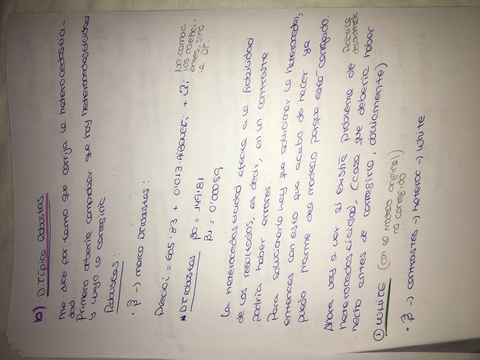 b) D. Típica Robustas
me dice por tanto que corrija la heterocedastici-
dad.
Primero debería comprobar que hay heterocedasticidad
y luego la corregiría.
Robustas:
• β → marco D. robustas:
Precio i = 605'83 + 0'013 + Ûi
No cambia los coefici-
entes, sino
la DT.
* DT Robustas
β0 = 49'81
β1 = 0'00059
La heterocedasticidad afecta a la fiabilidad
de los resultados, es decir, en un contraste
podría haber errores.
Para solucionarlo hay que solucionar la heterocedas,
entonces con esto que acabo de hacer ya
puedo fiarme del modelo porque está corregido.
Ahora voy a ver si existía problema de
heterocedasticidad, (cosa que debería haber
hecho antes de corregirlo, obviamente)
① White (con el modelo original)
no corregido
• β → contrastes → heteroc → White